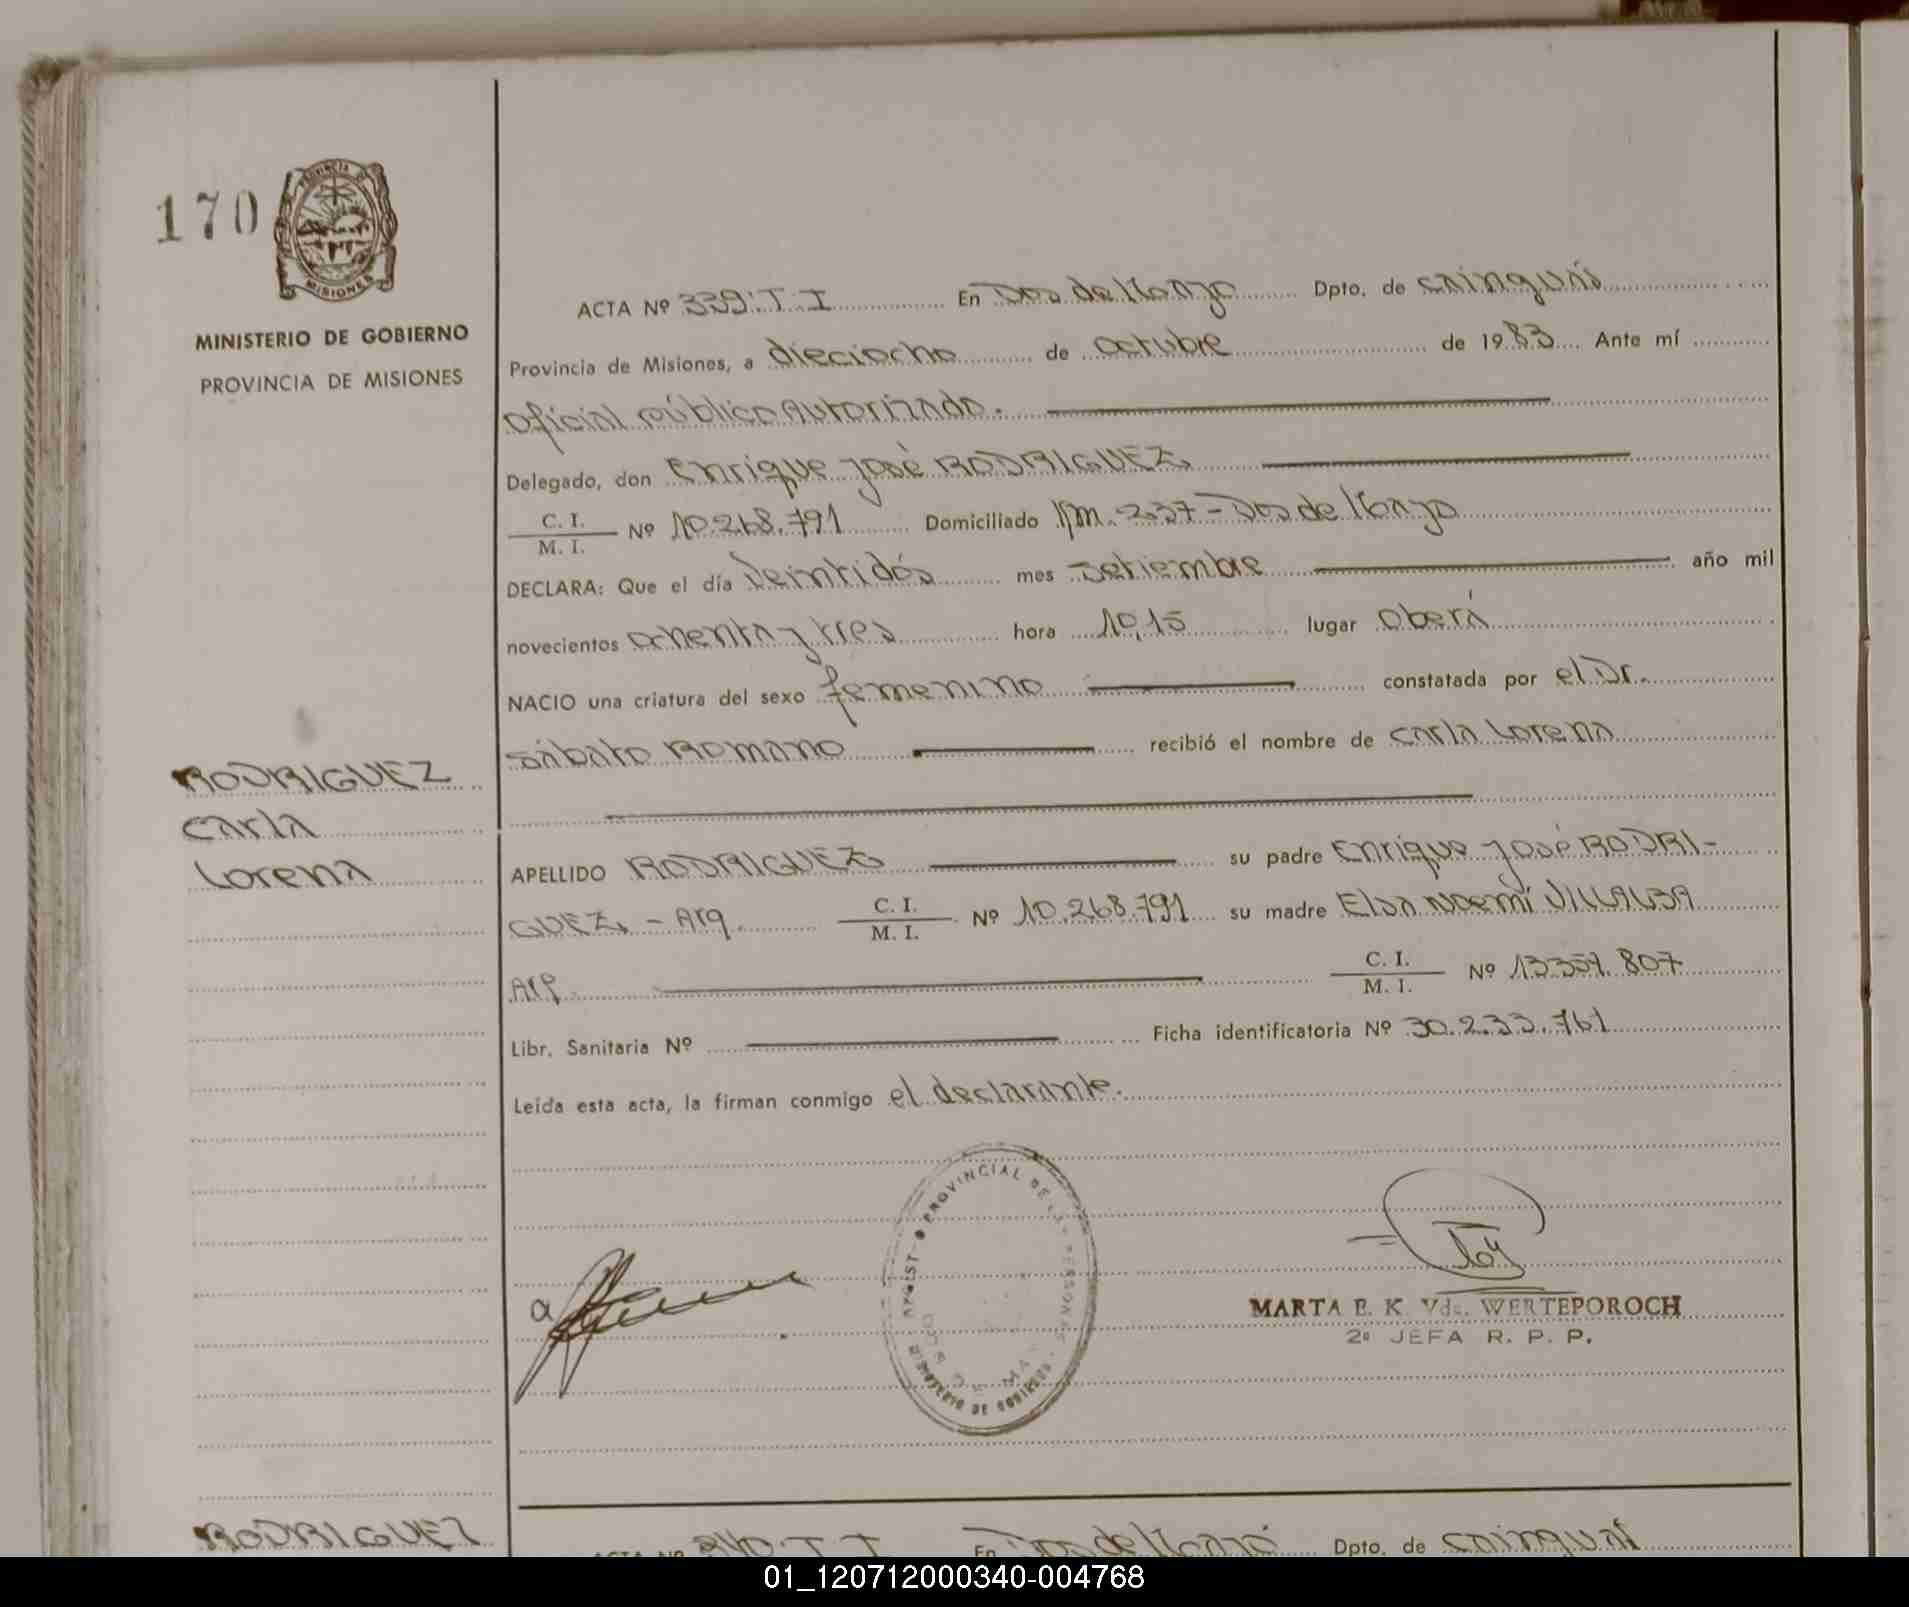 170
PROVINCIA DE
MISIONES
MINISTERIO DE GOBIERNO
PROVINCIA DE MISIONES
ACTA Nº 339. T. I En Dos de Mayo Dpto. de Cainguás
Provincia de Misiones, a dieciocho de octubre de 1983 Ante mí
Oficial Público Autorizado.
Delegado, don Enrique José RODRIGUEZ
C. I.
M. I. Nº 10.268.791 Domiciliado Km. 237 - Dos de Mayo
DECLARA: Que el día Veintidós mes Setiembre año mil
novecientos ochenta y tres hora 10,15 lugar Oberá
NACIO una criatura del sexo femenino constatada por el Dr.
Sábato Romano recibió el nombre de Carla Lorena
RODRIGUEZ
Carla
Lorena
APELLIDO RODRIGUEZ su padre Enrique José RODRI-
GUEZ - Arg. C. I.
M. I. Nº 10.268.791 su madre Elsa Noemí VILLALBA
Arg. C. I.
M. I. Nº 13.359.807
Libr. Sanitaria Nº Ficha identificatoria Nº 30.233.761
Leída esta acta, la firman conmigo el declarante.
PROVINCIAL DE LAS PERSONAS
MINISTERIO DE GOBIERNO
MARTA E. K. Vda. WERTEPOROCH
2ª JEFA R. P. P.
RODRIGUEZ
ACTA Nº 340. T. I En Dos de Mayo Dpto. de Cainguás
01_120712000340-004768